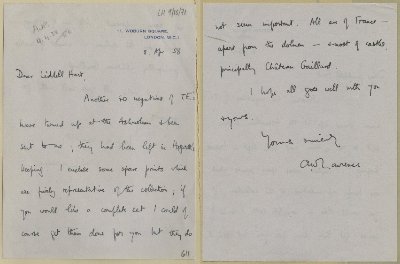 LH 9/13/71
11, WOBURN SQUARE,
LONDON, W.C.1.
8. Ap 58
Dear Liddell Hart,
Another 40 negatives of TE's
have turned up at the Ashmolean & been
sent to me; they had been left in Hogarth's
keeping. I enclose some spare prints which
are fairly representative of the collection; if
you would like a complete set I could of
course get them done for you but they do
not seem important. All are of France —
apart from the dolmen — & most of castles,
principally Château Gaillard.
I hope all goes well with you
& yours.
Yours sincerely
AW Lawrence